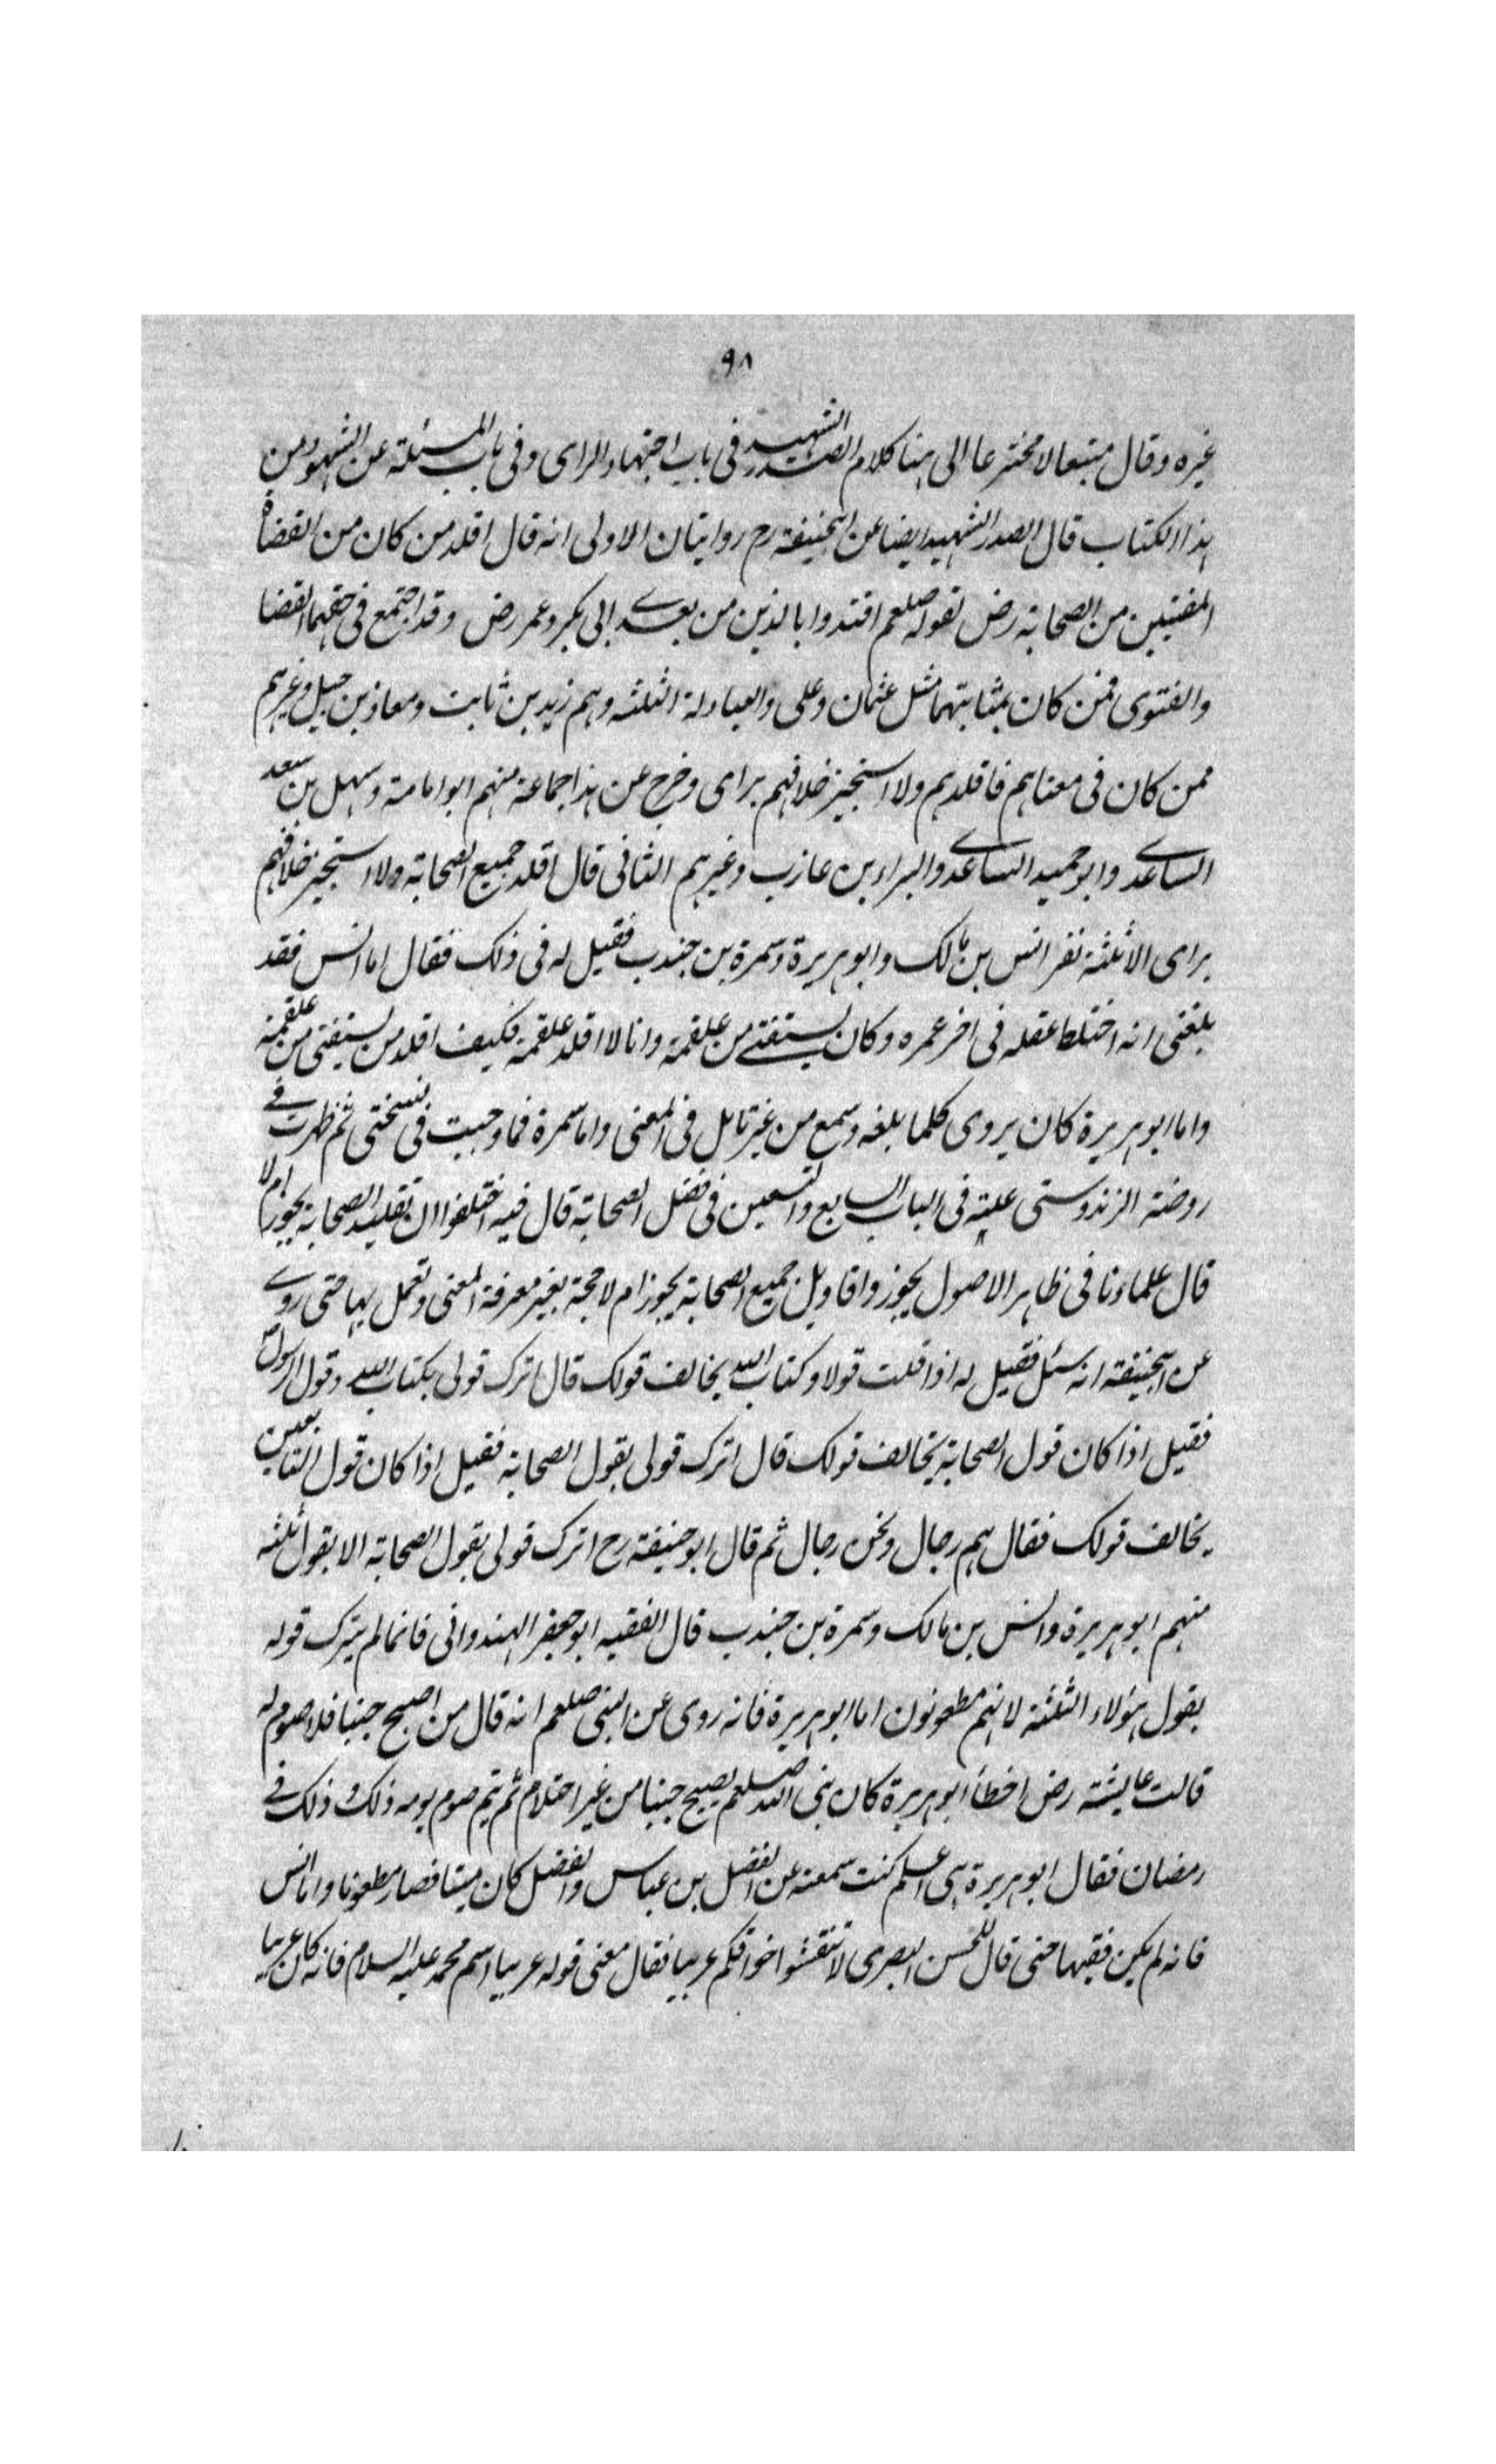 ٩٨
غيره وقال متبعا لا مخترعا الى هنا كلام الصدر الشهيد فى باب اجتهاد الراى وفى باب المسئلة عن الشهود من
هذا الكتاب قال الصدر الشهيد ايضا عن ابيحنيفة رح روايتان الاولى انه قال اقلد من كان من القضاة
المفتيين من الصحابة رض لقوله صلعم اقتدوا بالذين من بعدے ابى بكر وعمر رض وقد اجتمع فى حقهما القضا
والفتوى فمن كان بمثابتهما مثل عثمان وعلى والعبادلة الثلثة وهم زيد بن ثابت ومعاذ بن جبل وغيرهم
ممن كان فى معناهم فاقلدهم ولا استجيز خلافهم براى وخرج عن هذا جماعة منهم ابو امامة وسهل بن سعد
الساعدے وابو حميد الساعدے والبراء بن عازب وغيرهم الثانى قال اقلد جميع الصحابة ولا استجيز خلافهم
براى الا ثلثة نفر انس بن مالك وابو هريرة وسمرة بن جندب فقيل له فى ذلك فقال اما انس فقد
بلغنى انه اختلط عقله فى اخر عمره وكان يستفتے من علقمة وانا لا اقلد علقمة فكيف اقلد من يستفتى من علقمة
واما ابو هريرة كان يروى كلما بلغه وسمع من غير تامل فى المعنى واما سمرة فما وجبت فى نسختى ثم ظهرت فے
روضة الزندوستى عليه فى الباب السابع والتسعين فى فضل الصحابة قال فيه اختلفوا ان تقليد الصحابة يجوز ام لا
قال علماءنا فى ظاهر الاصول يجوز واقاويل جميع الصحابة يجوز ام لا حجة بغير معرفة المعنى وتعمل بها حتى روے
عن ابيحنيفة انه سئل فقيل له اذا قلت قولا وكتاب الله يخالف قولك قال اترك قولى بكتاب الله وقول الرسول
فقيل اذا كان قول الصحابة يخالف قولك قال اترك قولى بقول الصحابة فقيل اذا كان قول التابعين
يخالف قولك فقال هم رجال ونحن رجال ثم قال ابو حنيفة رح اترك قولى بقول الصحابة الا بقول ثلثه
منهم ابو هريرة وانس بن مالك وسمرة بن جندب قال الفقيه ابو جعفر الهندوانى فانما لم يترك قوله
بقول هؤلاء الثلثة لانهم مطعونون اما ابو هريرة فانه روى عن النبى صلعم انه قال من اصبح جنبا فلا صوم له
قالت عايشة رض اخطأ ابو هريرة كان نبى الله صلعم يصبح جنبا من غير احتلام ثم يتم صوم يومه ذلك وذلك فے
رمضان فقال ابو هريرة هى اعلم كنت سمعته عن الفضل بن عباس والفضل كان ميتا فصار مطعونا واما انس
فانه لم يكن فقيها حتى قال للحسن البصرى لا تنقشوا خواتمكم عربيا فقال معنى قوله عربيا اسم محمد عليه السلام فانه كان عربيا